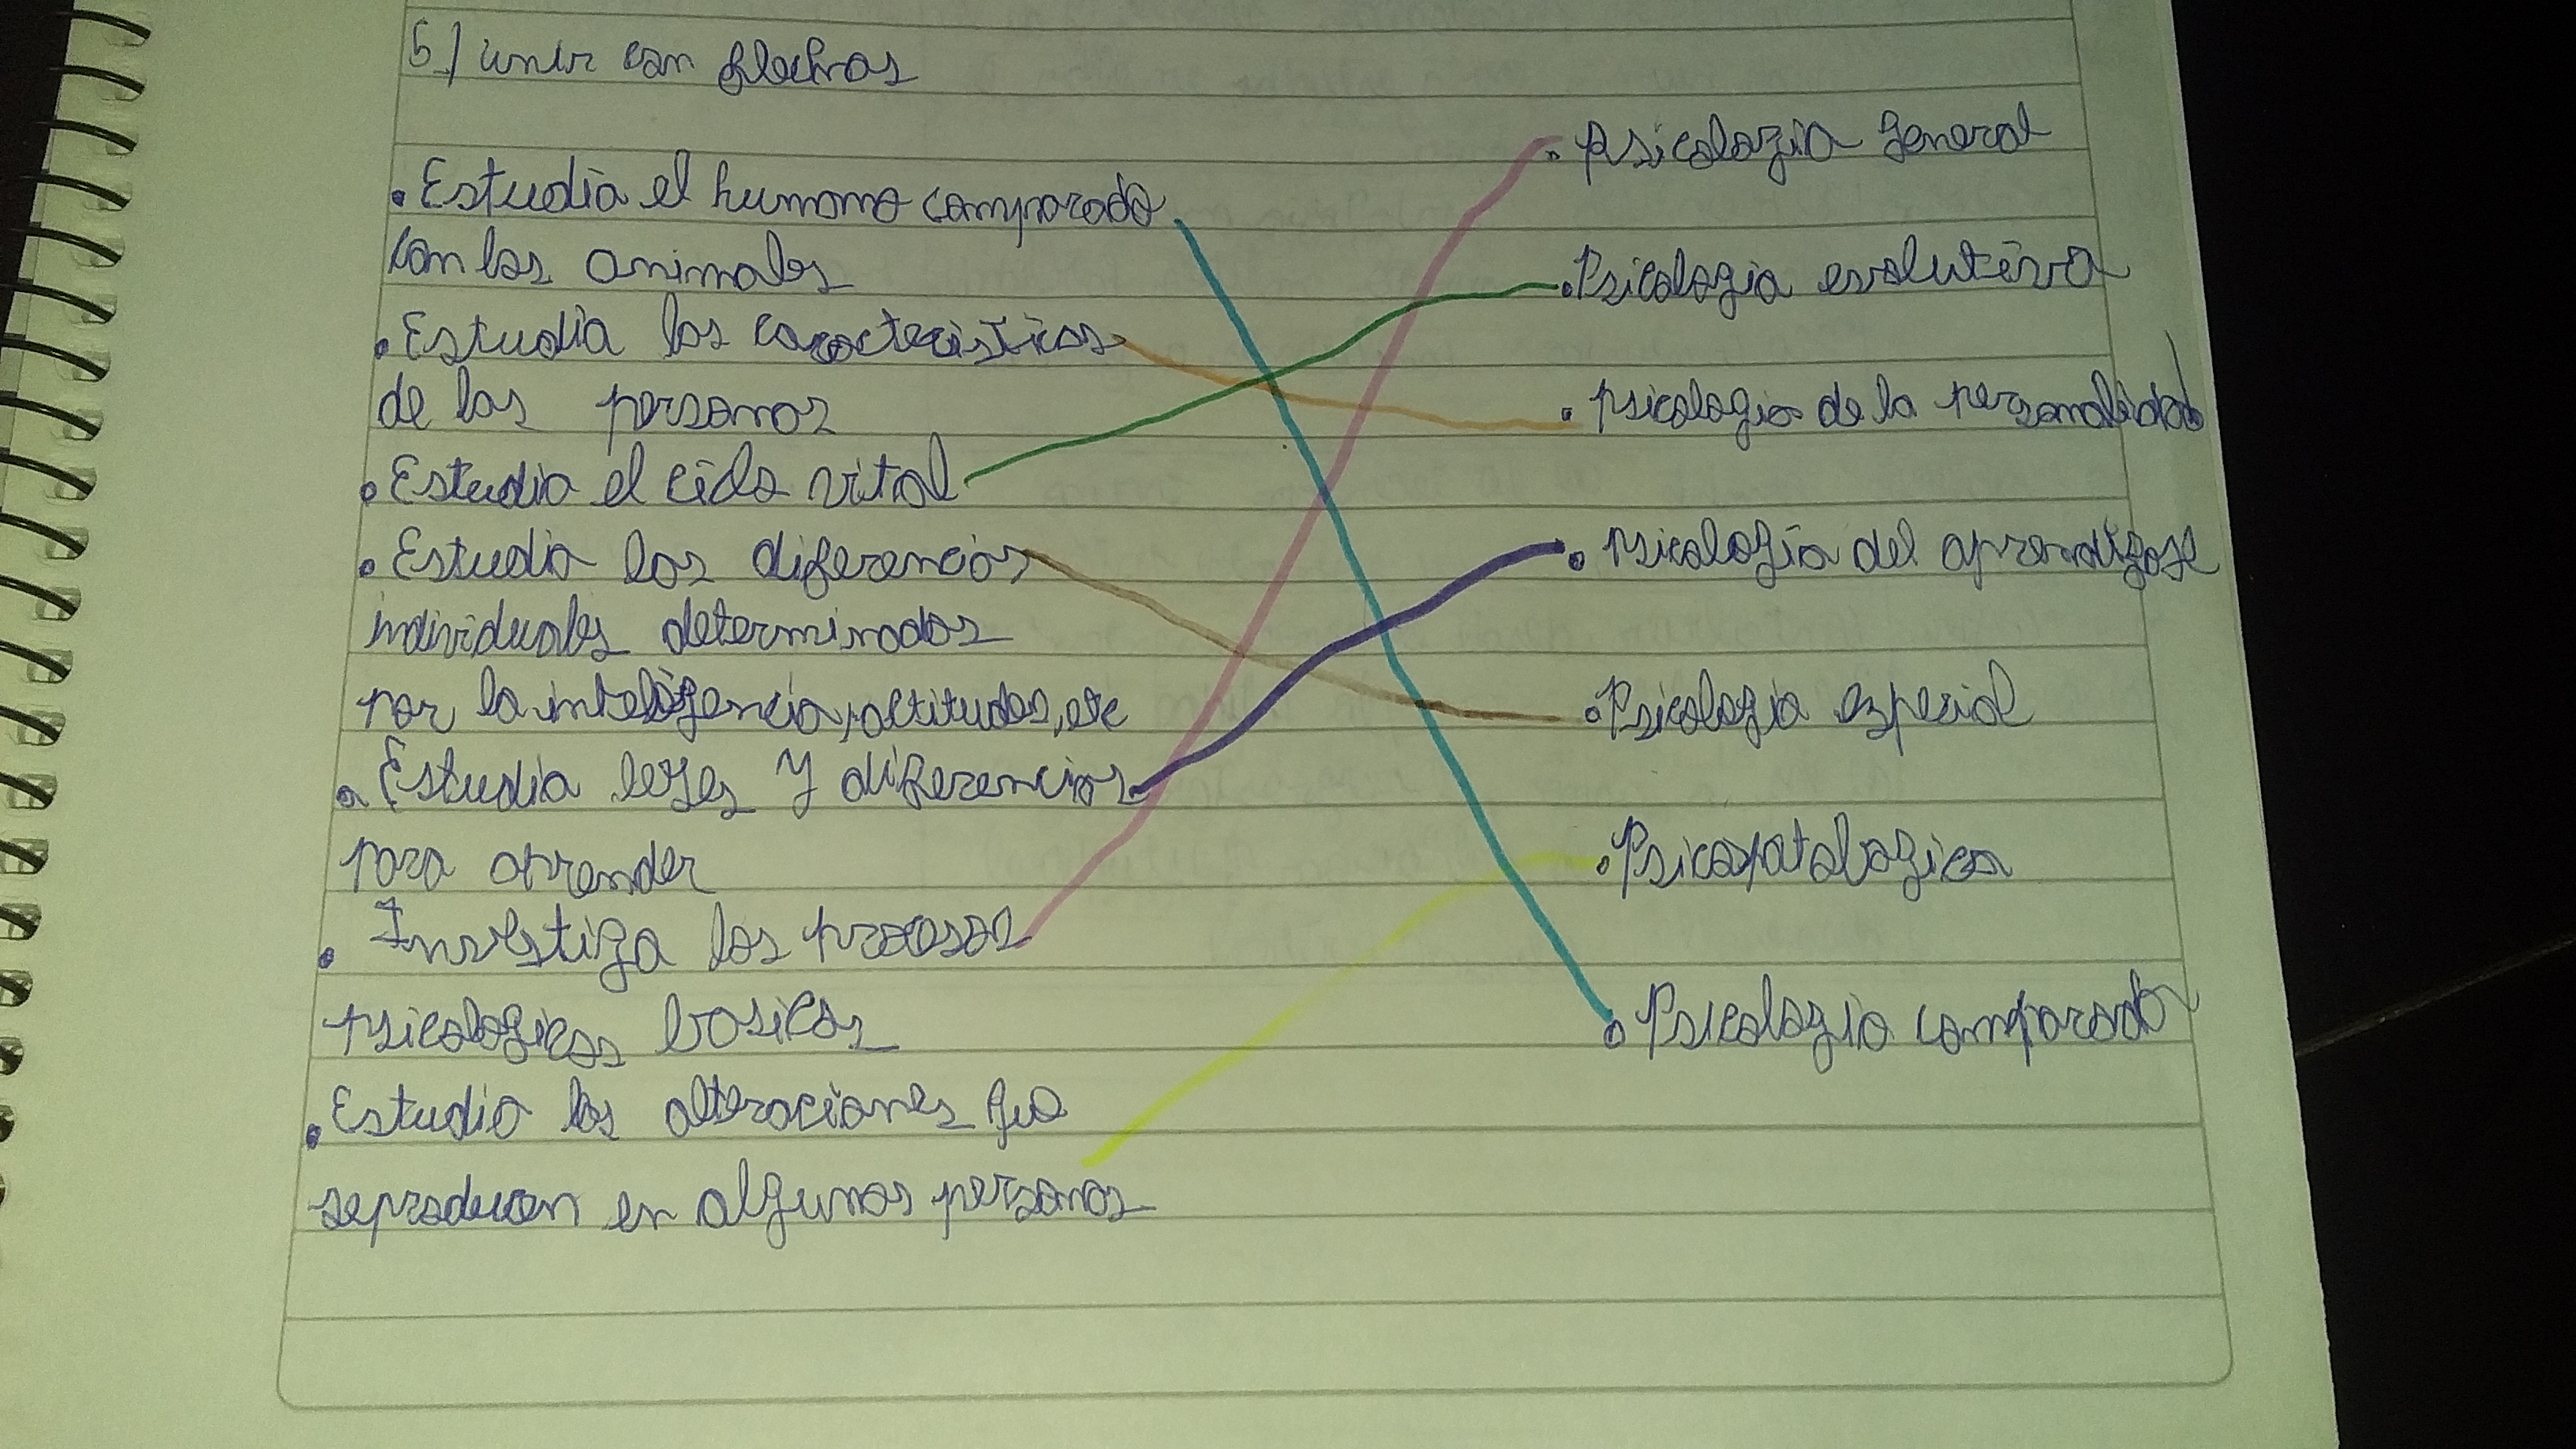 5) unir con flechas
• Estudia el humano comparado
con los animales
• Estudia las caracteristicas
de las personas
• Estudia el ciclo vital
• Estudia las diferencias
individuales determinadas
por la inteligencia, actitudes, etc
• Estudia leyes y diferencias
para aprender
• Investiga los procesos
psicologicos basicos
• Estudia las alteraciones que
seproducen en algunas personas
• Psicologia General
• Psicologia evolutiva
• psicologia de la personalidad
• psicologia del aprendizaje
• Psicologia especial
• Psicopatologica
• Psicologia comparada